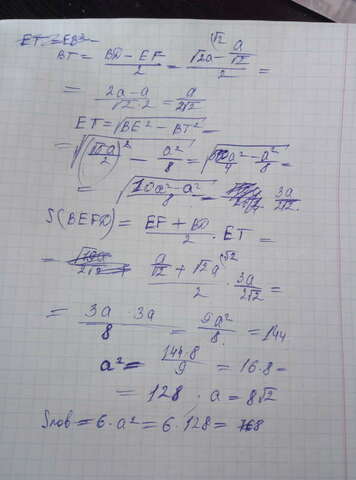 BT = (BD - EF)/2 = (√2a - a/√2)/2 =
= (2a - a)/(√2·2) = a/(2√2)
ET = √(BE² - BT²) =
= √((√5a/2)² - a²/8) = √(5a²/4 - a²/8) =
= √((10a² - a²)/8) = 3a/(2√2)
S(BEFD) = (EF + BD)/2 · ET =
= (a/√2 + √2a)/2 · 3a/(2√2) =
= (3a · 3a)/8 = 9a²/8 = 144
a² = (144·8)/9 = 16·8 =
= 128, a = 8√2
Sпов = 6·a² = 6·128 = 768